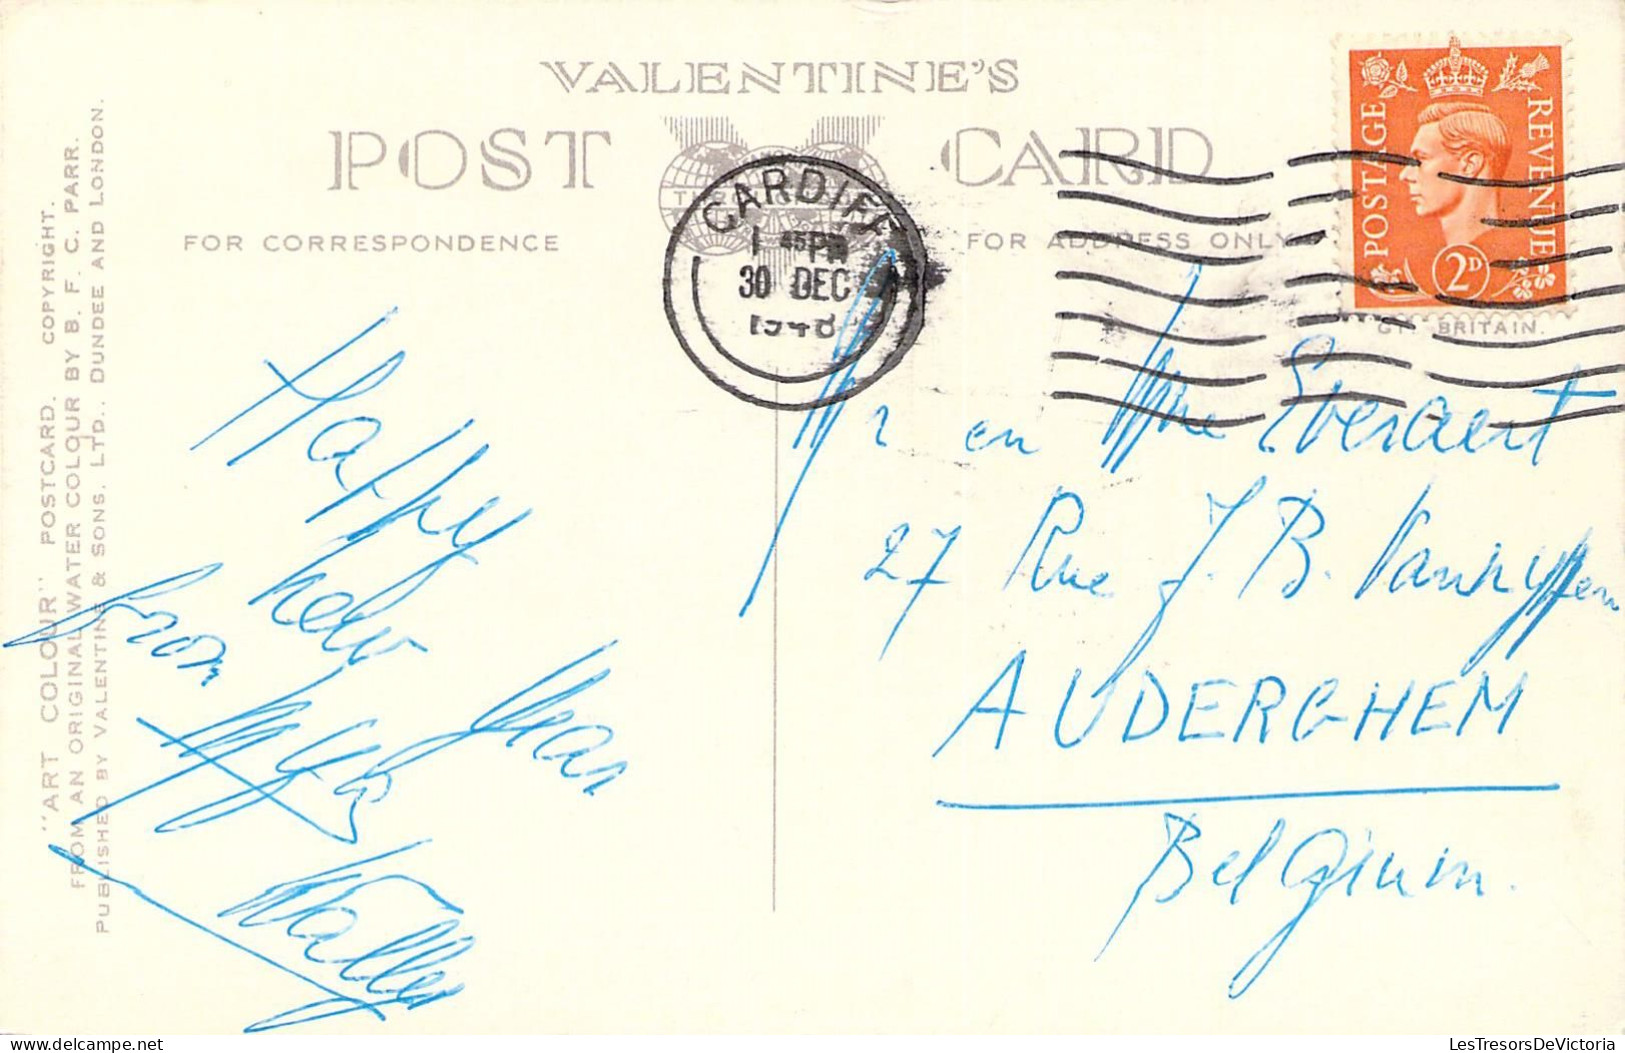 VALENTINE'S
POST CARD
FOR CORRESPONDENCE
FOR ADDRESS ONLY
"ART COLOUR" POSTCARD. COPYRIGHT.
FROM AN ORIGINAL WATER COLOUR BY B. F. C. PARR.
PUBLISHED BY VALENTINE & SONS. LTD., DUNDEE AND LONDON.
CARDIFF
1 45 PM
30 DEC
1948
POSTAGE
REVENUE
2D
GT. BRITAIN.
Happy
new Year
from
Walley
Mr en Mme Everaert
27 Rue J. B. Vanhyffen
AUDERGHEM
Belgium.
LesTresorsDeVictoria
delcampe.net